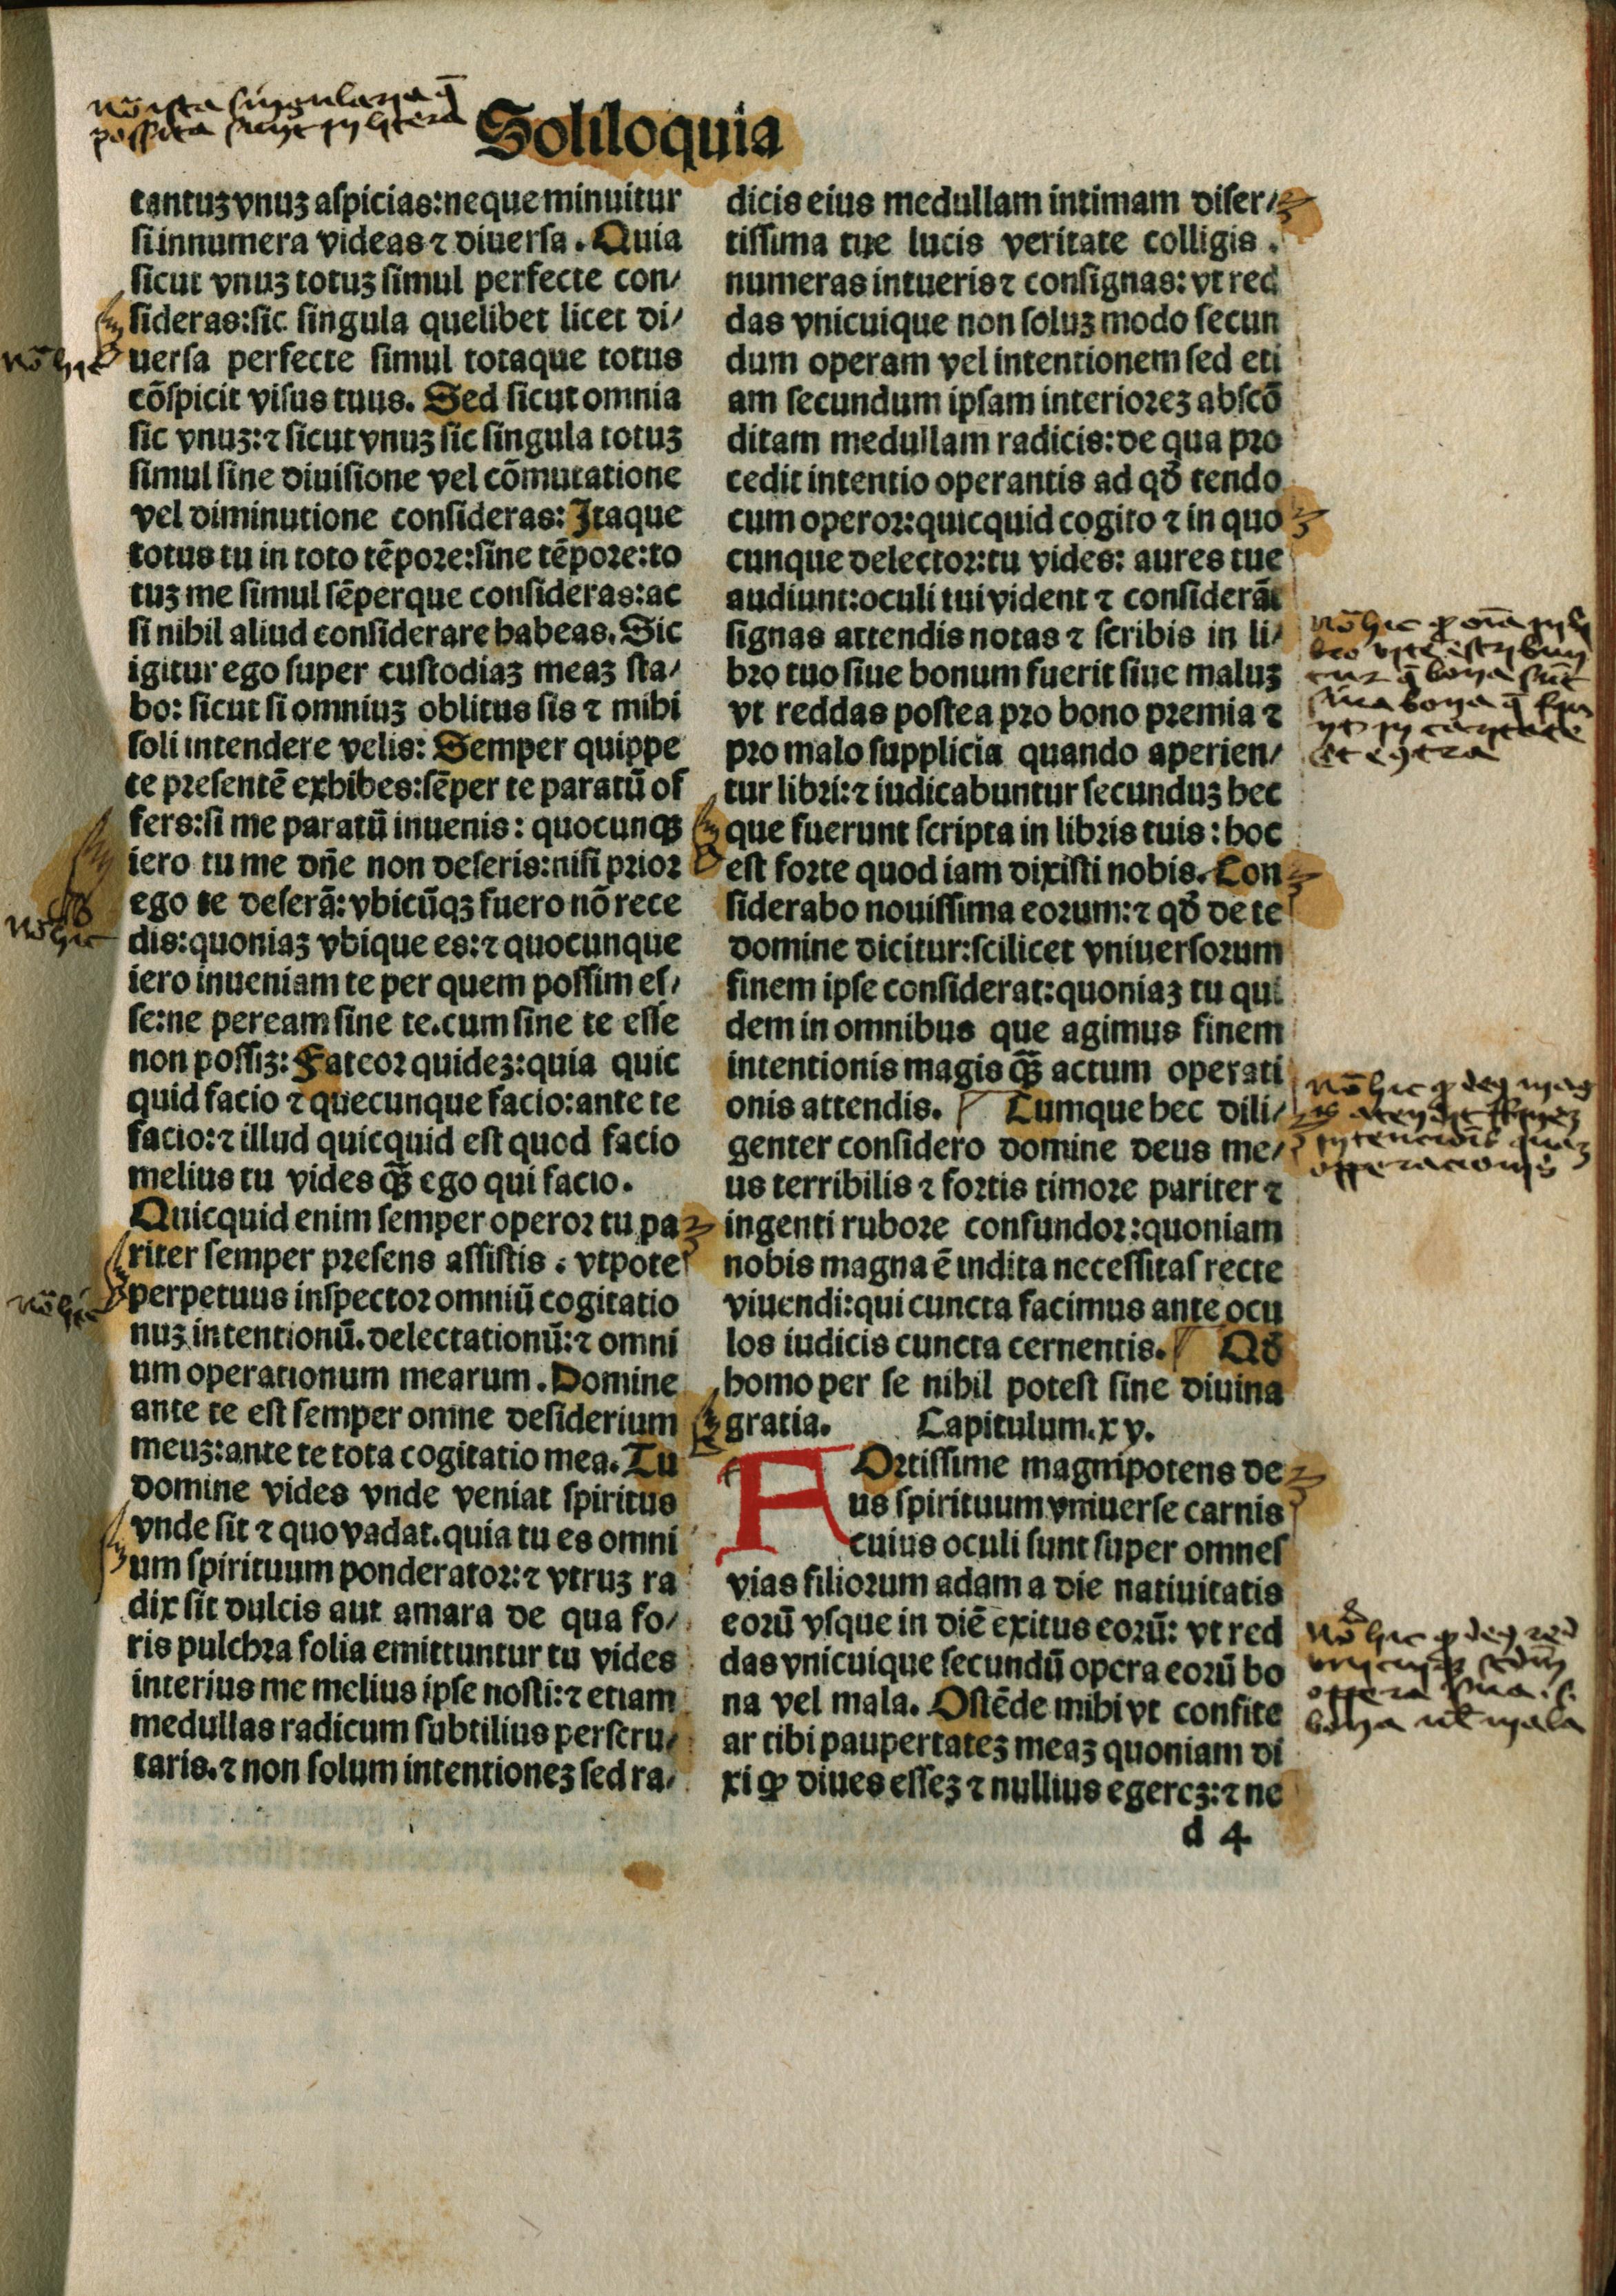 Soliloquia
tantuꝫ vnuꝫ aſpicias: neque minuitur
ſi innumera videas ⁊ diuerſa. Quia
ſicut vnuꝫ totuꝫ ſimul perfecte con/
ſideras: ſic ſingula quelibet licet di/
uerſa perfecte ſimul totaque totus
cõſpicit viſus tuus. Sed ſicut omnia
ſic vnuꝫ: ⁊ ſicut vnuꝫ ſic ſingula totuꝫ
ſimul ſine diuiſione vel cõmutatione
vel diminutione conſideras: Itaque
totus tu in toto tẽpore: ſine tẽpore: to
tuꝫ me ſimul ſẽperque conſideras: ac
ſi nihil aliud conſiderare habeas. Sic
igitur ego ſuper cuſtodiaꝫ meaꝫ ſta/
bo: ſicut ſi omniuꝫ oblitus ſis ⁊ mihi
ſoli intendere velis: Semper quippe
te preſentẽ exhibes: ſẽper te paratũ of
fers: ſi me paratũ inuenis: quocunqꝫ
iero tu me dñe non deſeris: niſi prior
ego te deſerã: vbicũqꝫ fuero nõ rece
dis: quoniaꝫ vbique es: ⁊ quocunque
iero inueniam te per quem poſſim eſ/
ſe: ne peream ſine te. cum ſine te eſſe
non poſſiꝫ: Fateor quideꝫ: quia quic
quid facio ⁊ quecunque facio: ante te
facio: ⁊ illud quicquid eſt quod facio
melius tu vides qꝫ̃ ego qui facio.
Quicquid enim ſemper operor tu pa
riter ſemper preſens aſſiſtis. vtpote
perpetuus inſpector omniũ cogitatio
nuꝫ intentionũ. delectationũ: ⁊ omni
um operationum mearum. Domine
ante te eſt ſemper omne deſiderium
meuꝫ: ante te tota cogitatio mea. Tu
domine vides vnde veniat ſpiritus
vnde ſit ⁊ quo vadat. quia tu es omni
um ſpirituum ponderator: ⁊ vtruꝫ ra
dix ſit dulcis aut amara de qua fo/
ris pulchra folia emittuntur tu vides
interius me melius ipſe noſti: ⁊ etiam
medullas radicum ſubtilius perſcru/
taris. ⁊ non ſolum intentioneꝫ ſed ra/
dicis eius medullam intimam diſer/
tiſſima tue lucis veritate colligis.
numeras intueris ⁊ conſignas: vt red
das vnicuique non ſoluꝫ modo ſecun
dum operam vel intentionem ſed eti
am ſecundum ipſam interioreꝫ abſcõ
ditam medullam radicis: de qua pro
cedit intentio operantis ad qď tendo
cum operor: quicquid cogito ⁊ in quo
cunque delector: tu vides: aures tue
audiunt: oculi tui vident ⁊ conſiderãt
ſignas attendis notas ⁊ ſcribis in li/
bro tuo ſiue bonum fuerit ſiue maluꝫ
vt reddas poſtea pro bono premia ⁊
pro malo ſupplicia quando aperien/
tur libri: ⁊ iudicabuntur ſecunduꝫ hec
que fuerunt ſcripta in libris tuis: hoc
eſt forte quod iam dixiſti nobis. Con
ſiderabo nouiſſima eorum: ⁊ qď de te
domine dicitur: ſcilicet vniuerſorum
finem ipſe conſiderat: quoniaꝫ tu qui
dem in omnibus que agimus finem
intentionis magis qꝫ̃ actum operati
onis attendis. Cumque hec dili/
genter conſidero domine deus me/
us terribilis ⁊ fortis timore pariter ⁊
ingenti rubore confundor: quoniam
nobis magna ẽ indita neceſſitaſ recte
viuendi: qui cuncta facimus ante ocu
los iudicis cuncta cernentis. Qď
homo per ſe nihil poteſt ſine diuina
gratia. Capitulum. xv.
FOrtiſſime magnipotens de
us ſpirituum vniuerſe carnis
cuius oculi ſunt ſuper omneſ
vias filiorum adam a die natiuitatis
eorũ vſque in diẽ exitus eorũ: vt red
das vnicuique ſecundũ opera eorũ bo
na vel mala. Oſtẽde mihi vt confite
ar tibi paupertateꝫ meaꝫ quoniam di
xi ꝙ diues eſſeꝫ ⁊ nullius egereꝫ: ⁊ ne
d 4
nõ iſta ſingularia q̄
poſſita ſunt in litera
nõ hic
nõ hic
nõ hic